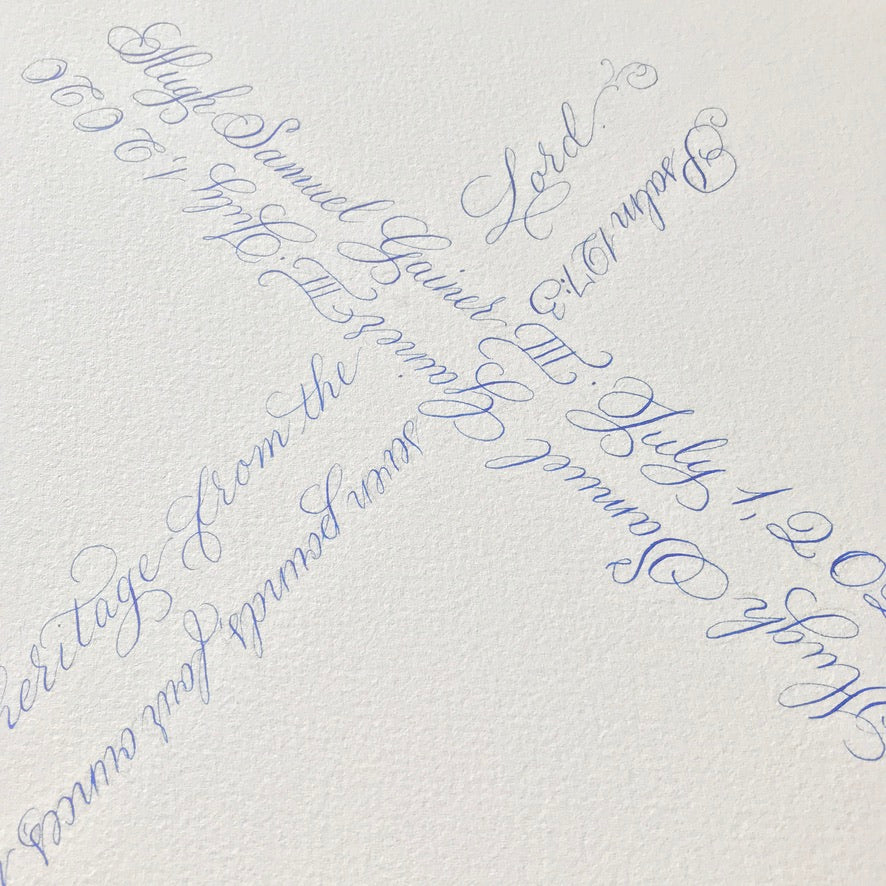 Hugh Samuel Gainer III. July 1, 20
Hugh Samuel Gainer III. July 1, 2020
heritage from the Lord.
Psalm 127:3 seven pounds, four ounces